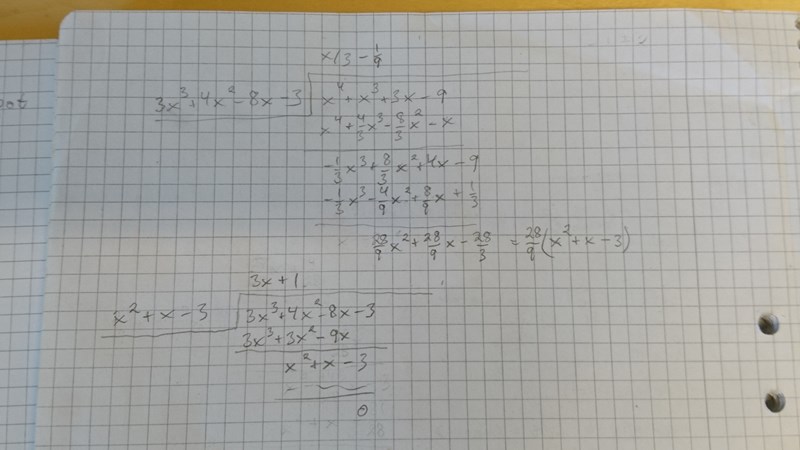 x/3 - 1/9
3x³+4x²-8x-3 x⁴+x³+3x-9
x⁴+4/3x³-8/3x²-x
-1/3x³+8/3x²+4x-9
-1/3x³-4/9x²+8/9x+1/3
28/9x²+28/9x-28/3 =28/9(x²+x-3)
3x+1
x²+x-3 3x³+4x²-8x-3
3x³+3x²-9x
x²+x-3
0